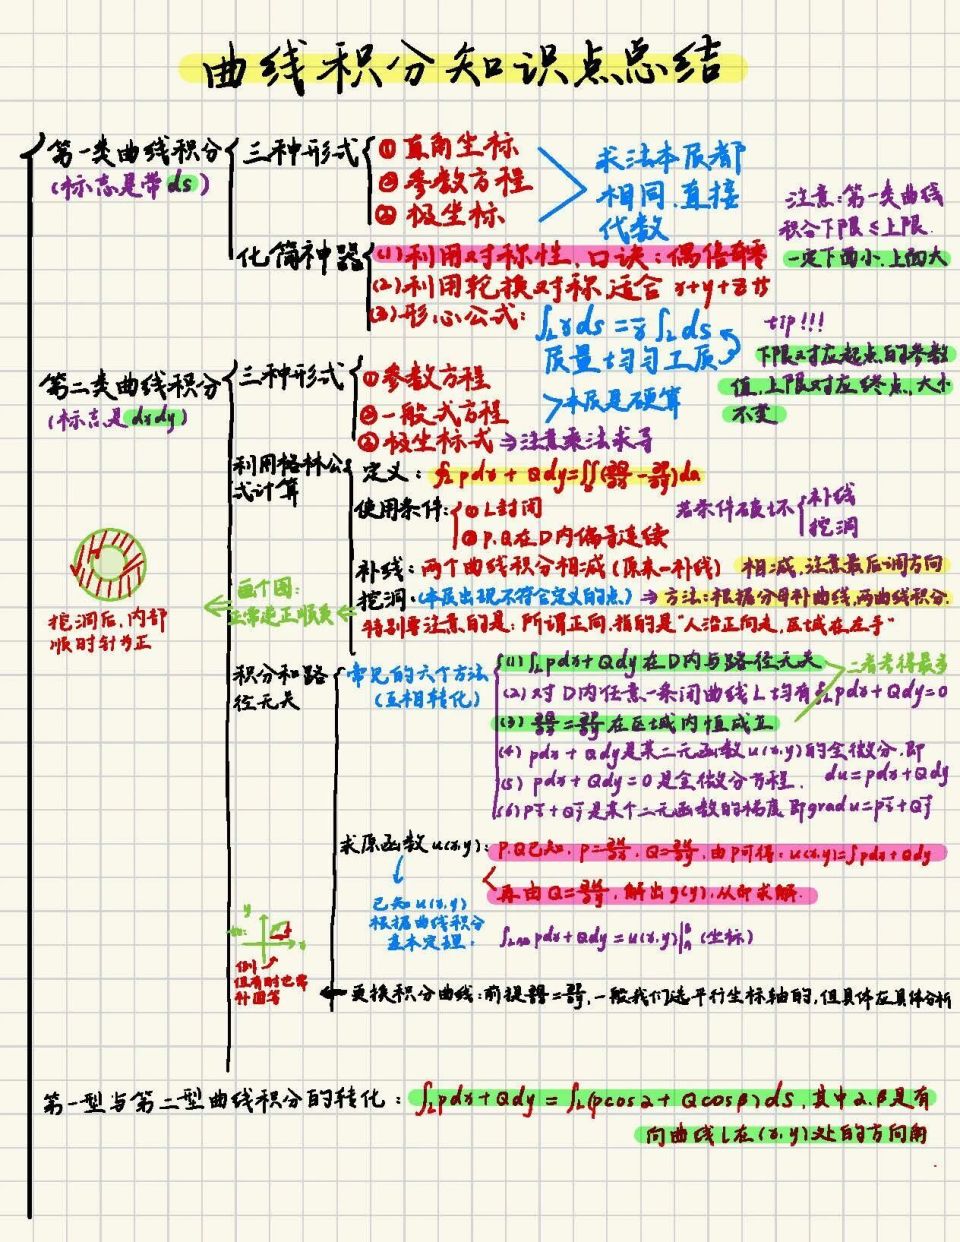 曲线积分知识点总结
第一类曲线积分
(标志是带ds)
三种形式
① 直角坐标
② 参数方程
③ 极坐标
求法本质都
相同,直接
代数
注意:第一类曲线
积分下限≤上限.
一定下面小,上面大
化简神器
(1)利用对称性,口诀:偶倍奇零
(2)利用轮换对称,适合 x+y+z 型
(3)形心公式:∫_L x ds = x̄ ∫_L ds
质量均匀工质
tip!!!
下限对应起点的参数
值,上限对应终点,大小
不变
第二类曲线积分
(标志是dxdy)
三种形式
①参数方程
②一般式方程
③极坐标式 ⇒注意乘法求导
本质是硬算
利用格林公
式计算
定义:∮_L pdx + Qdy=∬(∂Q/∂x - ∂P/∂y)dσ
使用条件:
① L封闭
② P.Q在D内偏导连续
若条件破坏
补线
挖洞
补线:两个曲线积分相减(原来-补线) 相减,注意最后调方向
挖洞:(本质出现不符合定义的点)⇒ 方法:根据分母补曲线,两曲线积分.
特别要注意的是:所谓正向,指的是"人沿正向走,区域在左手"
画个图:
正常逆正顺负
挖洞后,内部
顺时针为正
积分和路
径无关
常见的六个方法
(互相转化)
(1)∫_L pdx+Qdy在D内与路径无关
二者考得最多
(2)对D内任意一条闭曲线L均有∮_L pdx+Qdy=0
(3) ∂Q/∂x=∂P/∂y 在区域内恒成立
(4) pdx + Qdy是某二元函数u(x,y)的全微分,即
du=pdx+Qdy
(5) pdx+Qdy=0是全微分方程.
(6) Pi+Qj是某个二元函数的梯度,即gradu=Pi+Qj
求原函数u(x,y):
P.Q已知, P=∂u/∂x, Q=∂u/∂y, 由P可得:u(x,y)=∫pdx+Qdy
再由Q=∂u/∂y,解出g(y),从而求解.
已知u(x,y)
根据曲线积分
基本定理.
pdx+Qdy=u(x,y)|(坐标)
y
x
例
但有时也需
补圆等
更换积分曲线:前提∂Q/∂x=∂P/∂y,一般我们选平行坐标轴的,但具体应具体分析
第一型与第二型曲线积分的转化:∫_L pdx+Qdy=∫_L(pcosα+Qcosβ)ds,其中α.β是有
向曲线L在(x,y)处的方向角